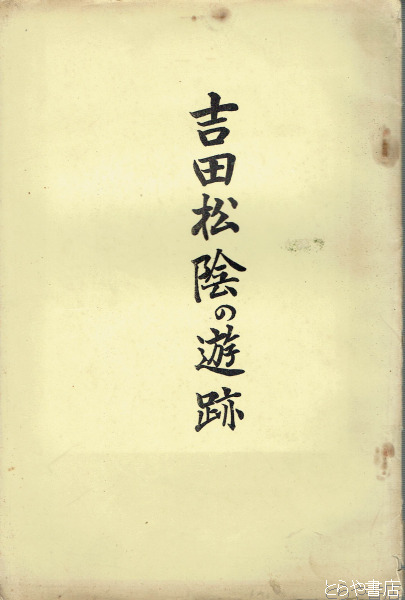 吉田松陰の遊跡
とらや書店